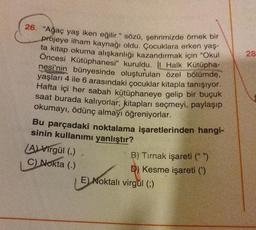 26. "Ağaç yaş iken eğilir" sözü, şehrimizde örnek bir
projeye ilham kaynağı oldu. Çocuklara erken yaş-
ta kitap okuma alışkanlığı kazandırmak için "Okul
Öncesi Kütüphanesi" kuruldu. İl Halk Kütüpha-
nesi'nin bünyesinde oluşturulan özel bölümde,
yaşları 4 ile 6 arasındaki çocuklar kitapla tanışıyor.
Hafta içi her sabah kütüphaneye gelip bir buçuk
saat burada kalıyorlar; kitapları seçmeyi, paylaşıp
okumayı, ödünç almayı öğreniyorlar.
Bu parçadaki noktalama işaretlerinden hangi-
sinin kullanımı yanlıştır?
A) Virgül (,)
B) Tırnak işareti (" ")
C) Nokta (.)
D) Kesme işareti (')
E) Noktalı virgül (;)
28